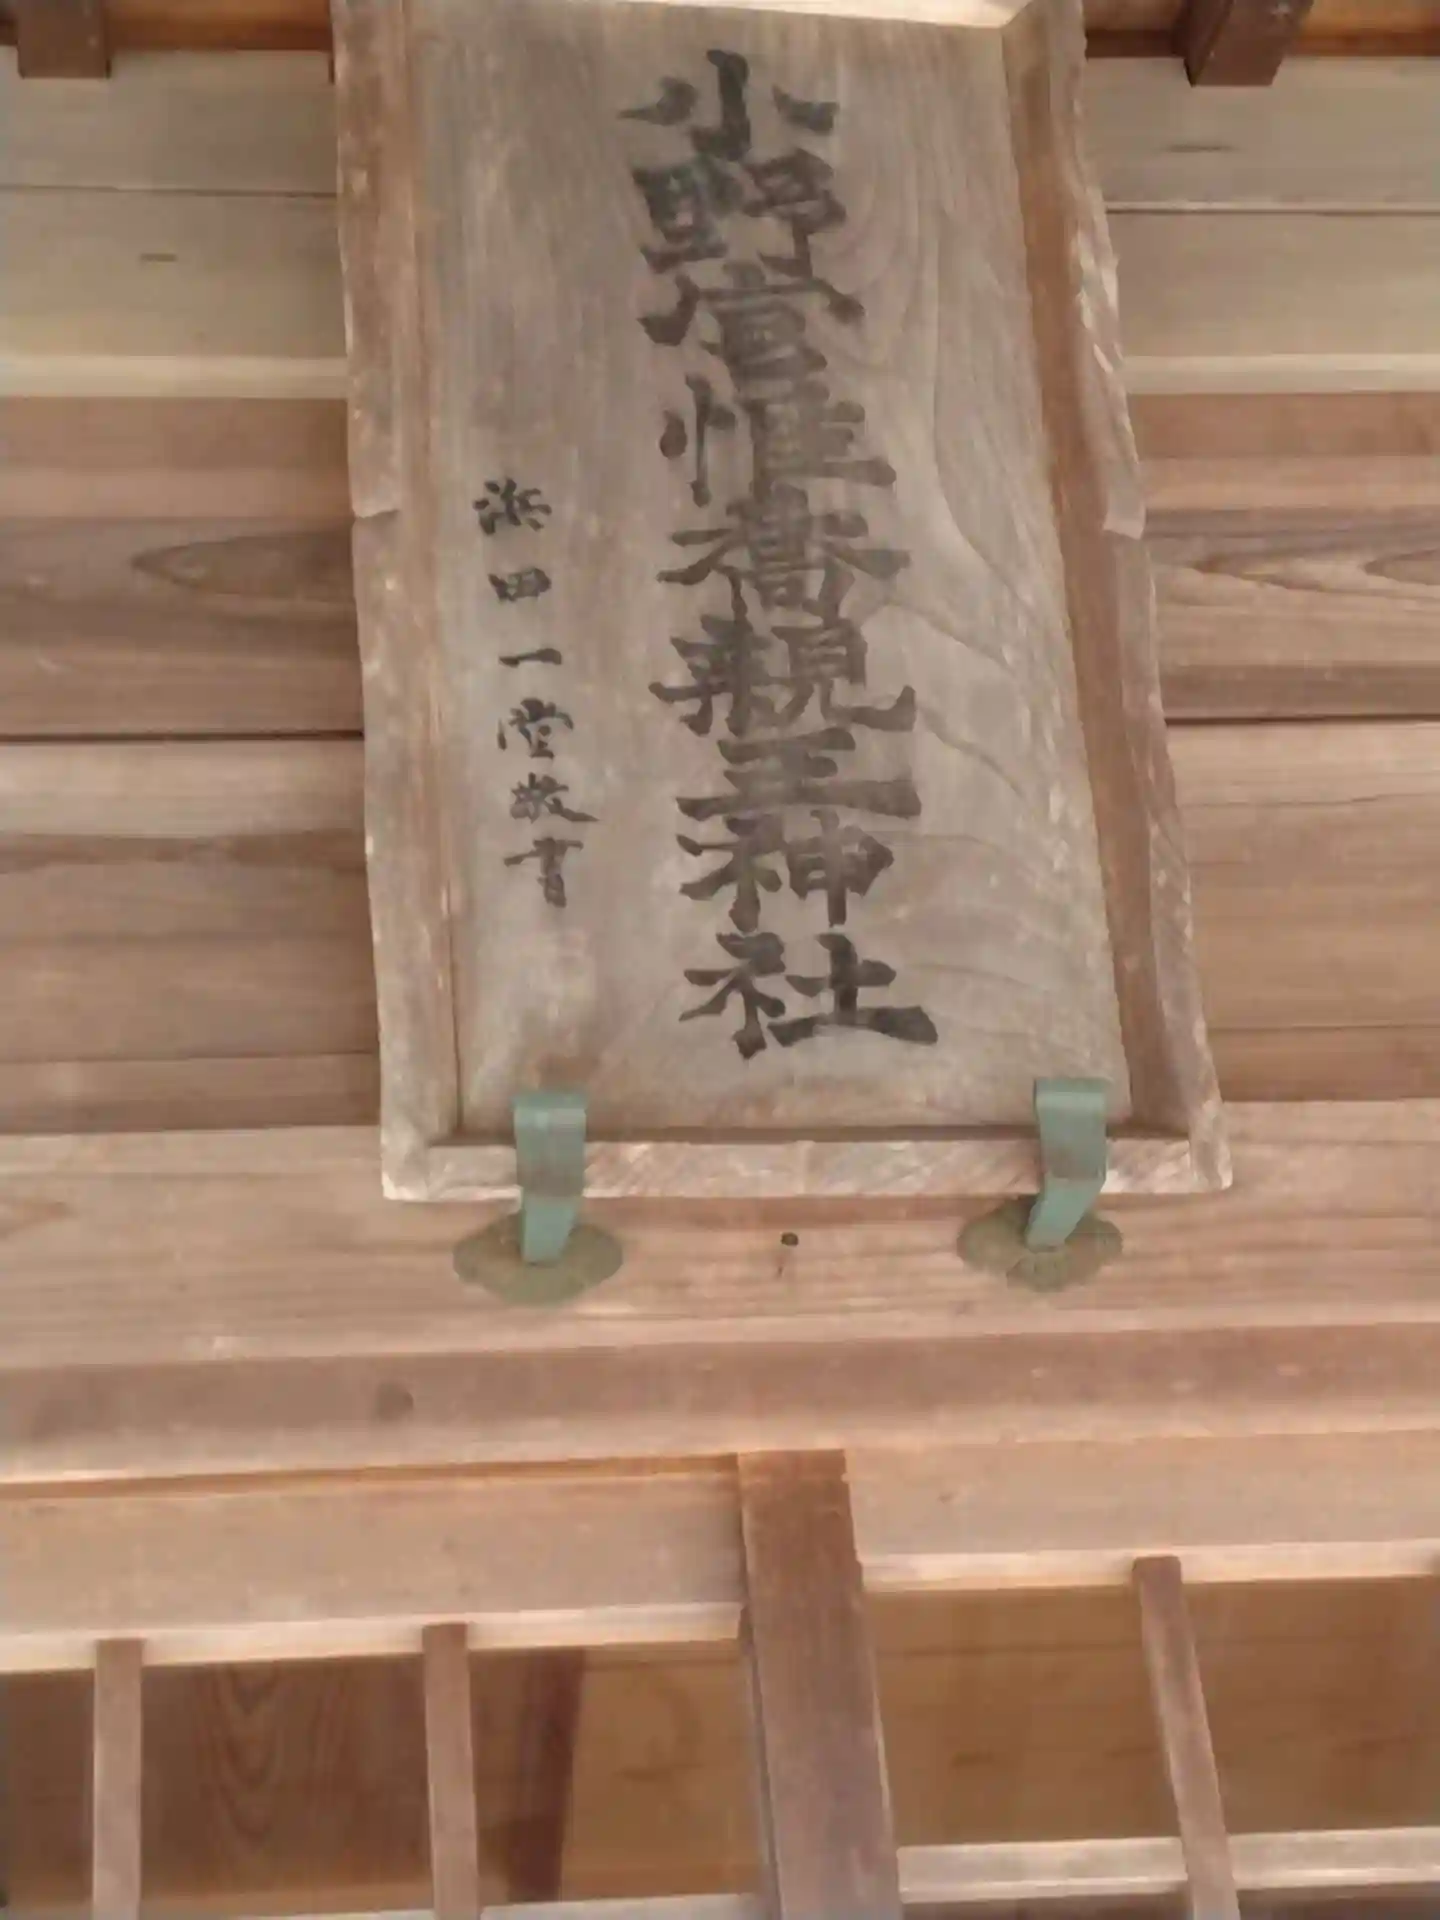 小野宮惟喬親王神社
浜田一堂敬書